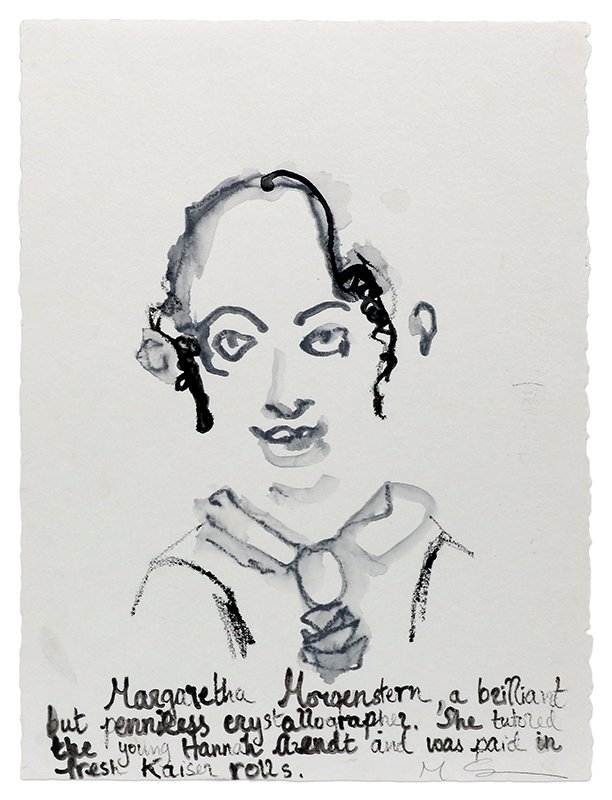 Margaretha Morgenstern, a brilliant
but penniless crystallographer. She tutored
the young Hannah Arendt and was paid in
fresh Kaiser rolls.